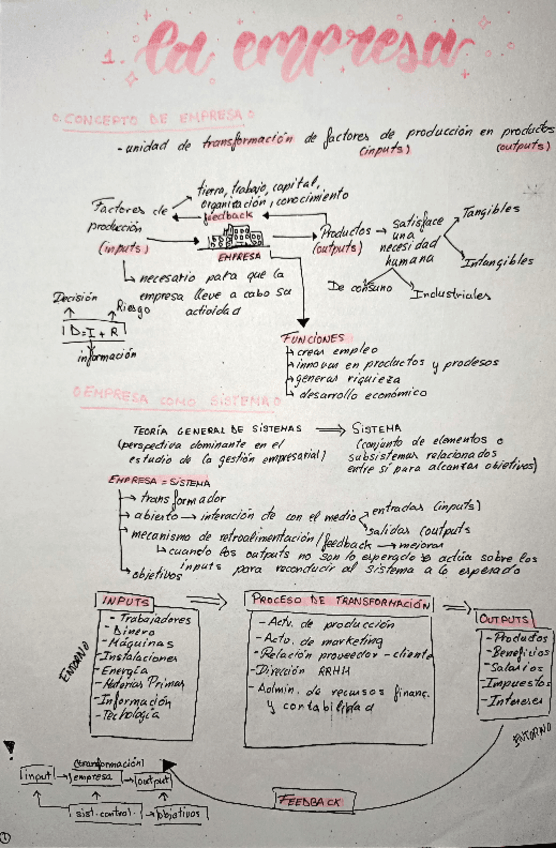 1. la empresa
CONCEPTO DE EMPRESA
- unidad de transformación de factores de producción en productos
(inputs) (outputs)
Factores de producción (inputs)
tierra, trabajo, capital,
organización, conocimiento
feedback
EMPRESA
Productos (outputs)
satisface una necesidad humana
Tangibles
Intangibles
De consuno
Industriales
necesario para que la
empresa lleve a cabo su
actividad
Decisión
Riesgo
D=I+R
información
FUNCIONES
crear empleo
innovar en productos y prodesos
generar riquieza
desarrollo económico
EMPRESA COMO SISTEMA
TEORÍA GENERAL DE SISTEMAS ⟹ SISTEMA
(perspectiva dominante en el
estudio de la gestión empresarial)
(conjunto de elementos o
subsistemas relacionados
entre sí para alcanzar objetivos)
EMPRESA = SISTEMA
transformador
abierto → interacción de con el medio
entradas (inputs)
salidas (outputs
mecanismo de retroalimentación/feedback → mejorar
cuando los outputs no son lo esperado actúa sobre los
inputs para reconducir al sistema a lo esperado
objetivos
INPUTS
- Trabajadores
- Dinero
- Máquinas
- Instalaciones
- Energía
- Materias Primas
- Información
- Tecnología
ENTORNO
PROCESO DE TRANSFORMACIÓN
- Actv. de producción
- Actv. de marketing
- Relación proveedor - cliente
- Dirección RRHH
- Admin. de recursos financ.
y contabilidad
OUTPUTS
- Productos
- Beneficios
- Salarios
- Impuestos
- Intereses
ENTORNO
FEEDBACK
(transformación)
input → empresa → output
sist. control. → objetivos
1